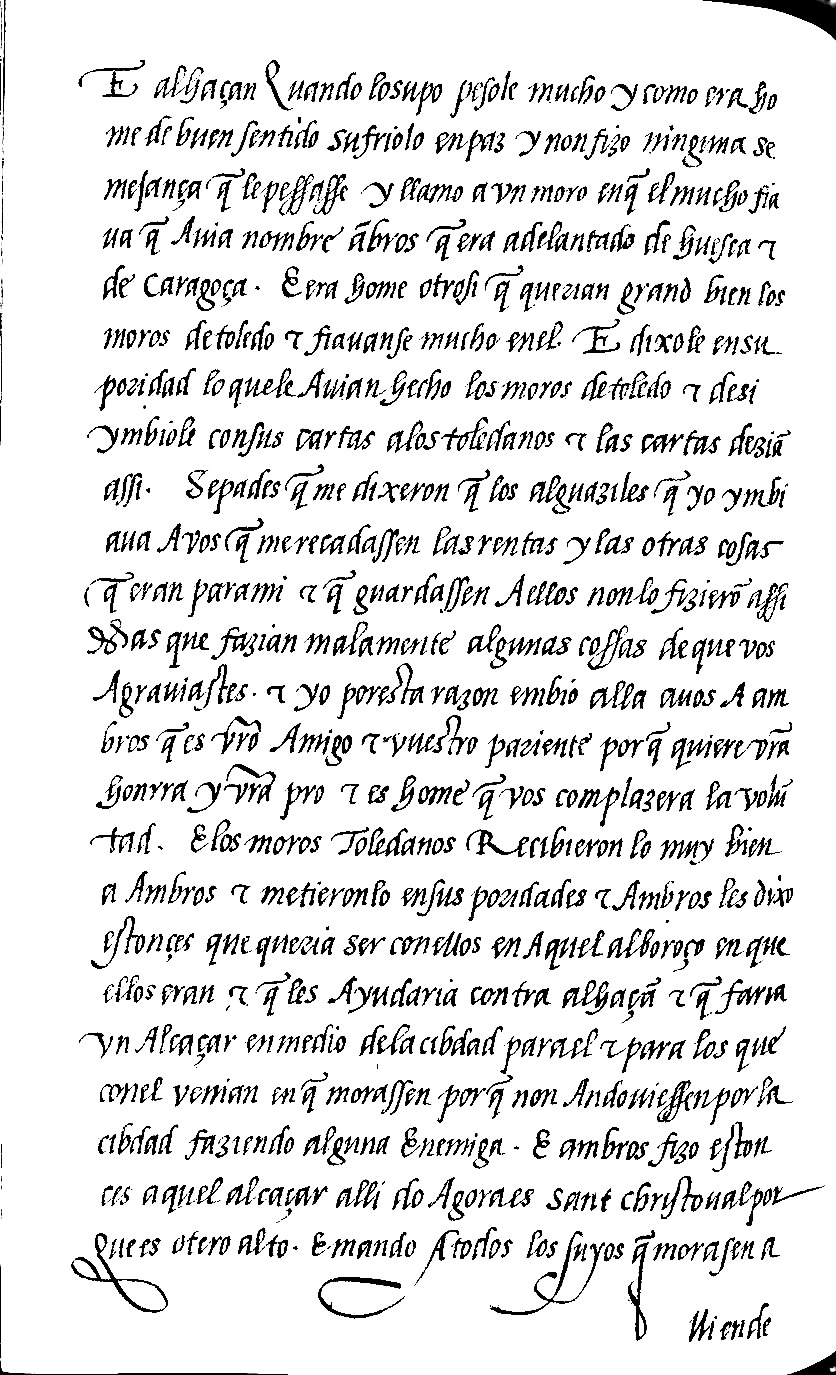 E alhaçan Quando losupo pesole mucho y como era ho
me de buen sentido sufriolo enpaz y nonfizo ninguna se
mejança q̃ lepessasse y llamo a vn moro enq̃ el mucho fia
ua q̃ Auia nombre ãbros q̃ era adelantado de huesca τ
de Caragoça. E era home otrosi q̃ querian grand bien los
moros detoledo τ fiauanse mucho enel. E dixole ensu
poridad lo quele Auian hecho los moros detoledo τ desi
ymbiole consus cartas alostoledanos τ las cartas deziã
assi. Sepades q̃ me dixeron q̃ los alguaziles q̃ yo ymbi
aua Avos q̃ merecadassen las rentas y las otras cosas
q̃ eran parami τ q̃ guardassen Aellos nonlo fizierõ assi
Mas que fazian malamente algunas cossas de que vos
Agrauiastes. τ yo poresta razon embio alla auos A am
bros q̃ es vr̃o Amigo τ vuestro pariente porq̃ quiere vr̃a
honrra y vr̃a pro τ es home q̃ vos complazera la volũ
tad. E los moros Toledanos Recibieron lo muy bien
a Ambros τ metieronlo ensus poridades τ Ambros les dixo
estonçes que queria ser conellos en Aquel alboroço en que
ellos eran τ q̃ les Ayudaria contra alhaçã τ q̃ faria
vn Alcaçar enmedio dela cibdad parael τ para los que
conel venian en q̃ morassen porq̃ non Andouiessen por la
cibdad faziendo alguna Enemiga. E ambros fizo eston
ces aquel alcaçar alli do Agora es sant christoual por
que es otero alto. E mando Atodos los suyos q̃ morasen a
lli ende